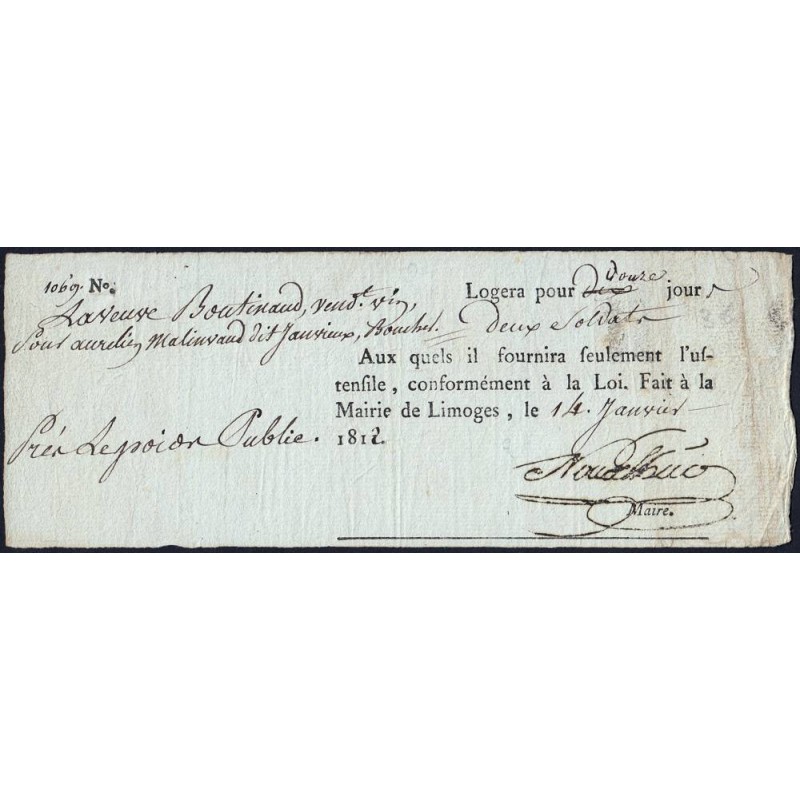 1069. No.
La veuve Boutinaud, vend.t vin,
pour aurelien Malinvaud dit Janvieux, Boucher.
Près Le poids Public.
Logera pour dix douze jours
deux Soldats
Aux quels il fournira ſeulement l'uſ-
tenſile, conformément à la Loi. Fait à la
Mairie de Limoges, le 14. Janvier
1812.
Maire.